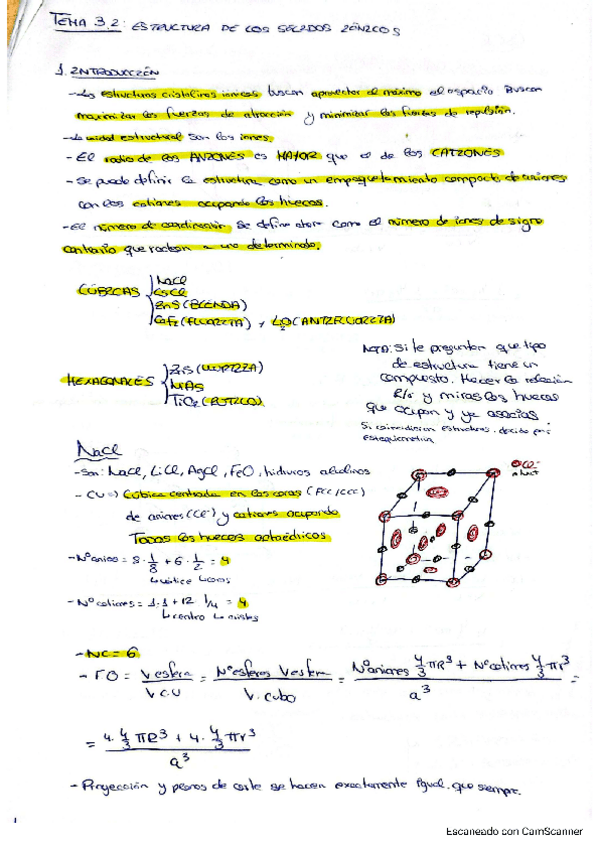 TEMA 3.2: ESTRUCTURA DE LOS SÓLIDOS IÓNICOS
1. INTRODUCCIÓN
- Las estructuras cristalinas iónicas buscan aprovechar al máximo el espacio. Buscan
maximizar las fuerzas de atracción y minimizar las fuerzas de repulsión.
- La unidad estructural son los iones.
- El radio de los ANIONES es MAYOR que el de los CATIONES
- Se puede definir la estructura como un empaquetamiento compacto de aniones
con los cationes ocupando los huecos.
- El número de coordinación se define ahora como el número de iones de signo
contrario que rodean a uno determinado.
CÚBICAS
NaCl
CsCl
ZnS (BLENDA)
CaF2 (FLUORITA) y Li2O (ANTIFLUORITA)
HEXAGONALES
ZnS (WURTZITA)
NiAs
TiO2 (RUTILO)
NOTA: Si te preguntan que tipo
de estructura tiene un
compuesto. Hacer la relación
R/r y miras los huecos
que ocupan y ya asocias
Si coinciden en estructuras, decido por
estequiometría
NaCl
- Son: NaCl, LiCl, AgCl, FeO, hidruros alcalinos
- CU => Cúbica centrada en las caras (FCC/CCC)
de aniones (Cl-) y cationes ocupando
Todos los huecos octaédricos
Cl-
Na+
- Nº aniones = 8 · 1/8 + 6 · 1/2 = 4
↳ vértice ↳ caras
- Nº cationes = 1·1 + 12 · 1/4 = 4
↳ centro ↳ aristas
- NC = 6
- FO = V esfera / V CU = Nº esferas V esfera / V. cubo = Nº aniones 4/3 πR³ + Nº cationes 4/3 πr³ / a³ =
= 4 · 4/3 πR³ + 4 · 4/3 πr³ / a³
- Proyección y planos de corte se hacen exactamente igual que siempre.
Escaneado con CamScanner